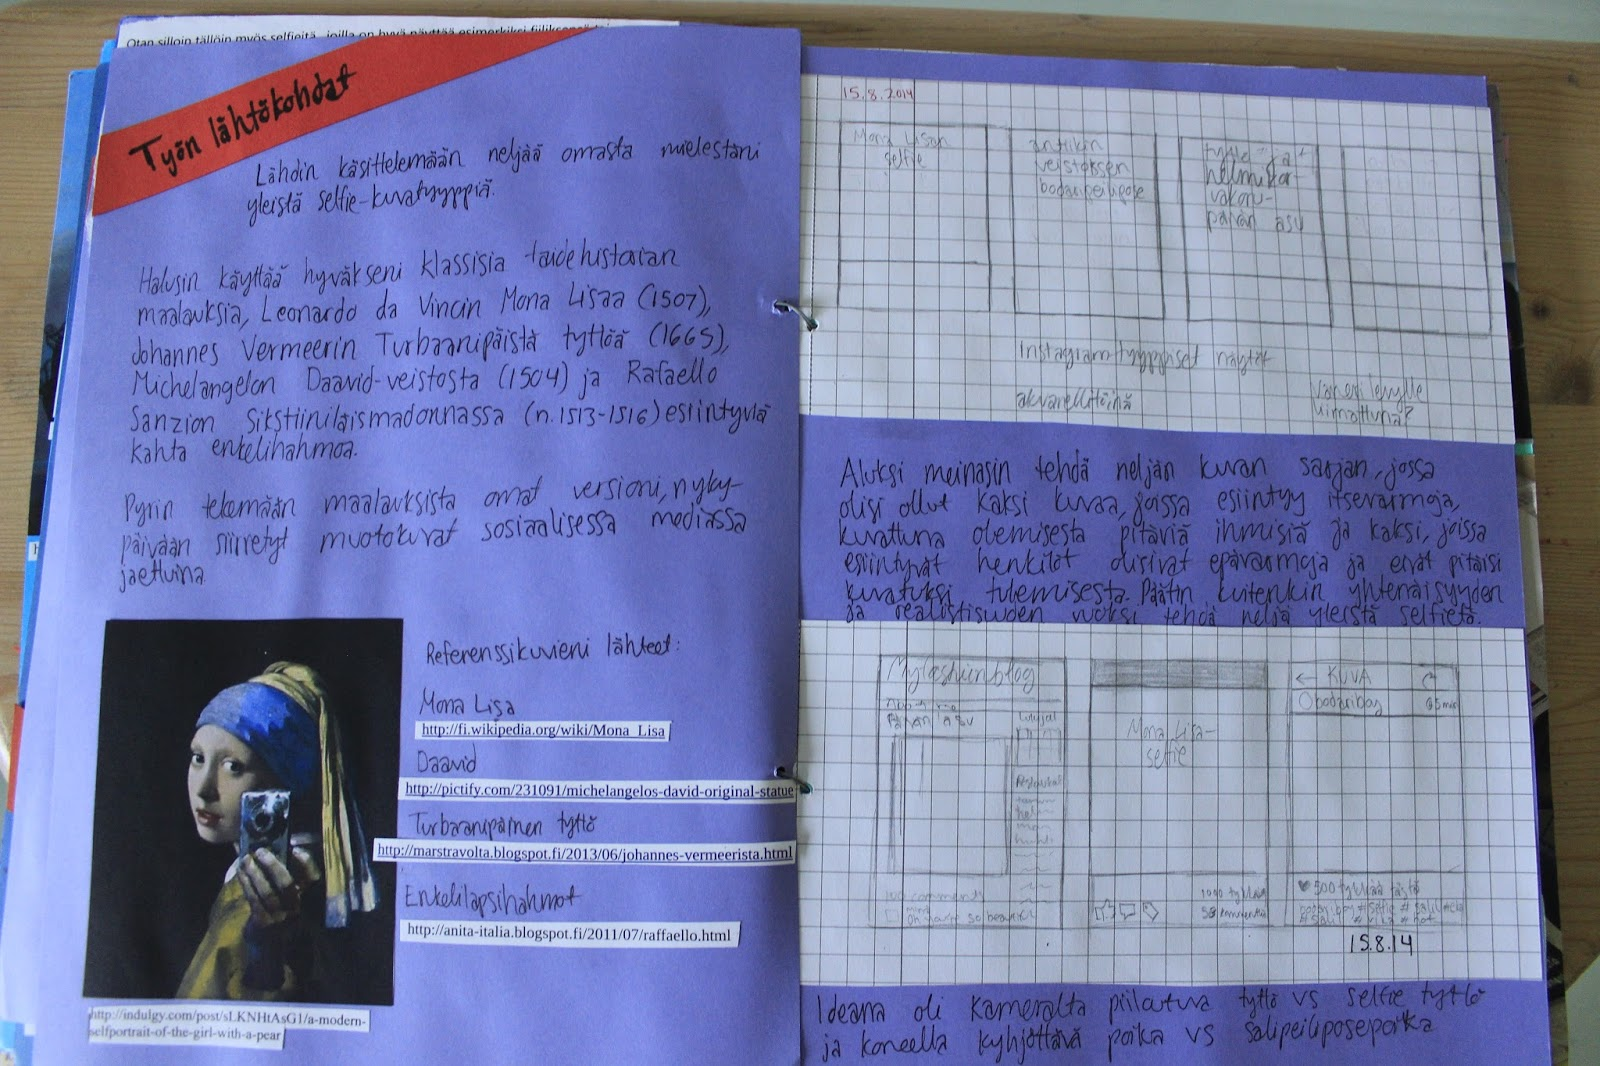 Otan silloin tällöin myös selfieitä, joilla on hyvä näyttää esimerkiksi
Työn lähtökohdat
Lähdin käsittelemään neljää omasta mielestäni
yleistä selfie-kuvatyyppiä.
Halusin käyttää hyväkseni klassisia taidehistorian
maalauksia, Leonardo da Vincin Mona Lisaa (1507),
Johannes Vermeerin Turbaanipäistä tyttöä (1665),
Michelangelon Daavid-veistosta (1504) ja Rafaello
Sanzion Sikstiiniläismadonnassa (n.1513-1516) esiintyviä
kahta enkelihahmoa.
Pyrin tekemään maalauksista omat versioni, nyky-
päivään siirretyt muotokuvat sosiaalisessa mediassa
jaettuina.
Referenssikuvieni lähteet:
Mona Lisa
http://fi.wikipedia.org/wiki/Mona_Lisa
Daavid
http://pictify.com/231091/michelangelos-david-original-statue
Turbaanipäinen tyttö
http://marstravolta.blogspot.fi/2013/06/johannes-vermeerista.html
Enkelilapsihahmot
http://anita-italia.blogspot.fi/2011/07/raffaello.html
http://indulgy.com/post/sLKNHtAsG1/a-modern-
selfportrait-of-the-girl-with-a-pear
15.8.2014
Mona Lisan
selfie
antiikin
veistoksen
bodaripeilipose
tyttö ja
helmikor
vakoru-
päivän asu
Instagramtyyppiset näytöt
akvarellitöinä
Vanerilevylle
kiinnattuna?
Aluksi meinasin tehdä neljän kuvan sarjan, jossa
olisi ollut kaksi kuvaa, joissa esiintyy itsevarmoja,
kuvattuna olemisesta pitäviä ihmisiä ja kaksi, joissa
esiintyvät henkilöt olisivat epävarmoja ja eivät pitäisi
kuvatuksi tulemisesta. Päätin kuitenkin yhtenäisyyden
ja realistisuuden vuoksi tehdä neljä yleistä selfietä.
Myfashionblog
Päivän asu
100 comments
so beautiful
Mona Lisa-
selfie
1000 tykkäystä
58 kommenttia
← KUVA
bodariboy 35 min
♥ 500 tykkää tästä
bodariboy # selfie # sali
# sali # hot
15.8.14
Ideana oli kameralta piiloutuva tyttö vs selfie tyttö
ja koneella kyhjöttävä poika vs salipeiliposepoika